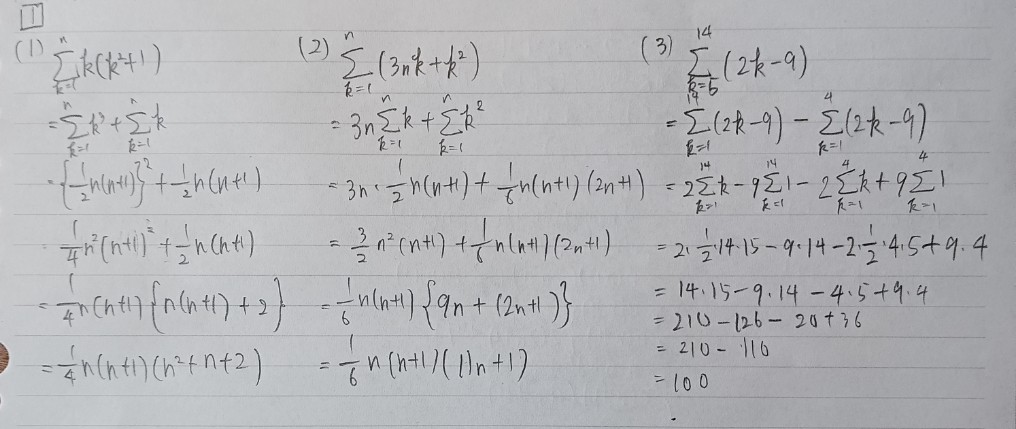 1
(1) \sum_{k=1}^{n} k(k^2+1)
= \sum_{k=1}^{n} k^3 + \sum_{k=1}^{n} k
= {\frac{1}{2}n(n+1)}^2 + \frac{1}{2}n(n+1)
= \frac{1}{4}n^2(n+1)^2 + \frac{1}{2}n(n+1)
= \frac{1}{4}n(n+1){n(n+1)+2}
= \frac{1}{4}n(n+1)(n^2+n+2)
(2) \sum_{k=1}^{n} (3nk+k^2)
= 3n\sum_{k=1}^{n} k + \sum_{k=1}^{n} k^2
= 3n・\frac{1}{2}n(n+1) + \frac{1}{6}n(n+1)(2n+1)
= \frac{3}{2}n^2(n+1) + \frac{1}{6}n(n+1)(2n+1)
= \frac{1}{6}n(n+1){9n+(2n+1)}
= \frac{1}{6}n(n+1)(11n+1)
(3) \sum_{k=5}^{14} (2k-9)
= \sum_{k=1}^{14} (2k-9) - \sum_{k=1}^{4} (2k-9)
= 2\sum_{k=1}^{14} k - 9\sum_{k=1}^{14} 1 - 2\sum_{k=1}^{4} k + 9\sum_{k=1}^{4} 1
= 2・\frac{1}{2}・14・15-9・14-2・\frac{1}{2}・4・5+9・4
= 14・15-9・14-4・5+9・4
= 210-126-20+36
= 210-110
= 100